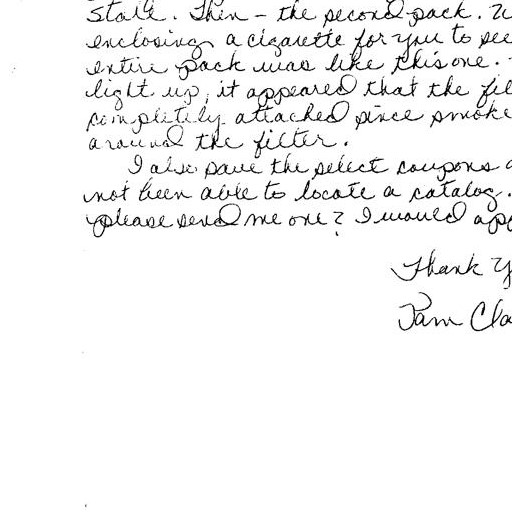 stale. Then - the second pack.
enclosing a cigarette for you to see
entire pack was like this one.
light up, it appeared that the fil
completely attached since smoke
around the filter.
I also save the select coupons
not been able to locate a catalog.
please send me one? I would app
Thank Y
Pam Cla